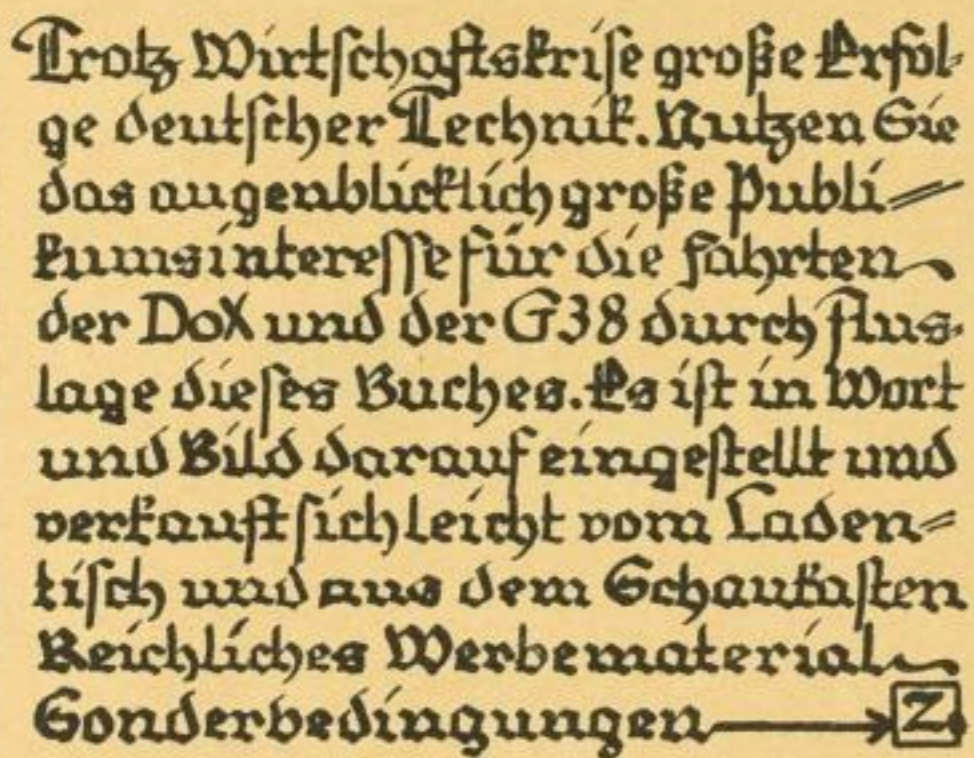 Trotz Wirtschaftskrise große Erfol-
ge deutscher Technik. Nutzen Sie
das augenblicklich große Publi-
kumsinteresse für die Fahrten
der DoX und der G38 durch Aus-
lage dieses Buches. Es ist in Wort
und Bild darauf eingestellt und
verkauft sich leicht vom Laden-
tisch und aus dem Schaukasten
Reichliches Werbematerial
Sonderbedingungen → Z